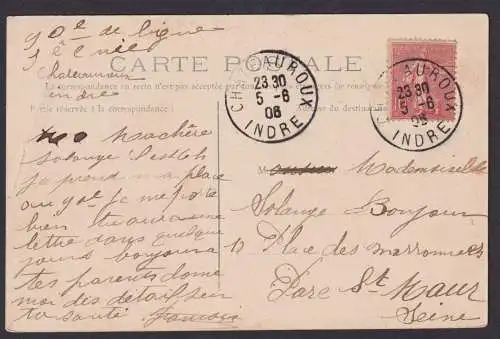 90e de ligne
Chateauroux
indre
CARTE POSTALE
La correspondance au recto n'est pas acceptée par
Partie réservée à la correspondance
Adresse du destinataire
CHATEAUROUX
23 30
5 - 6
06
INDRE
CHATEAUROUX
23 30
5 - 6
06
INDRE
Ma chère
Solange
je prend ma place
au 90e je me porte
bien tu auras une
lettre dans quelque
jours bonjour a
tes parents donne
moi des détails sur
ta santé
M Mademoiselle
Solange Bonjour
13 Place des marronniers
Parc St Maur
Seine